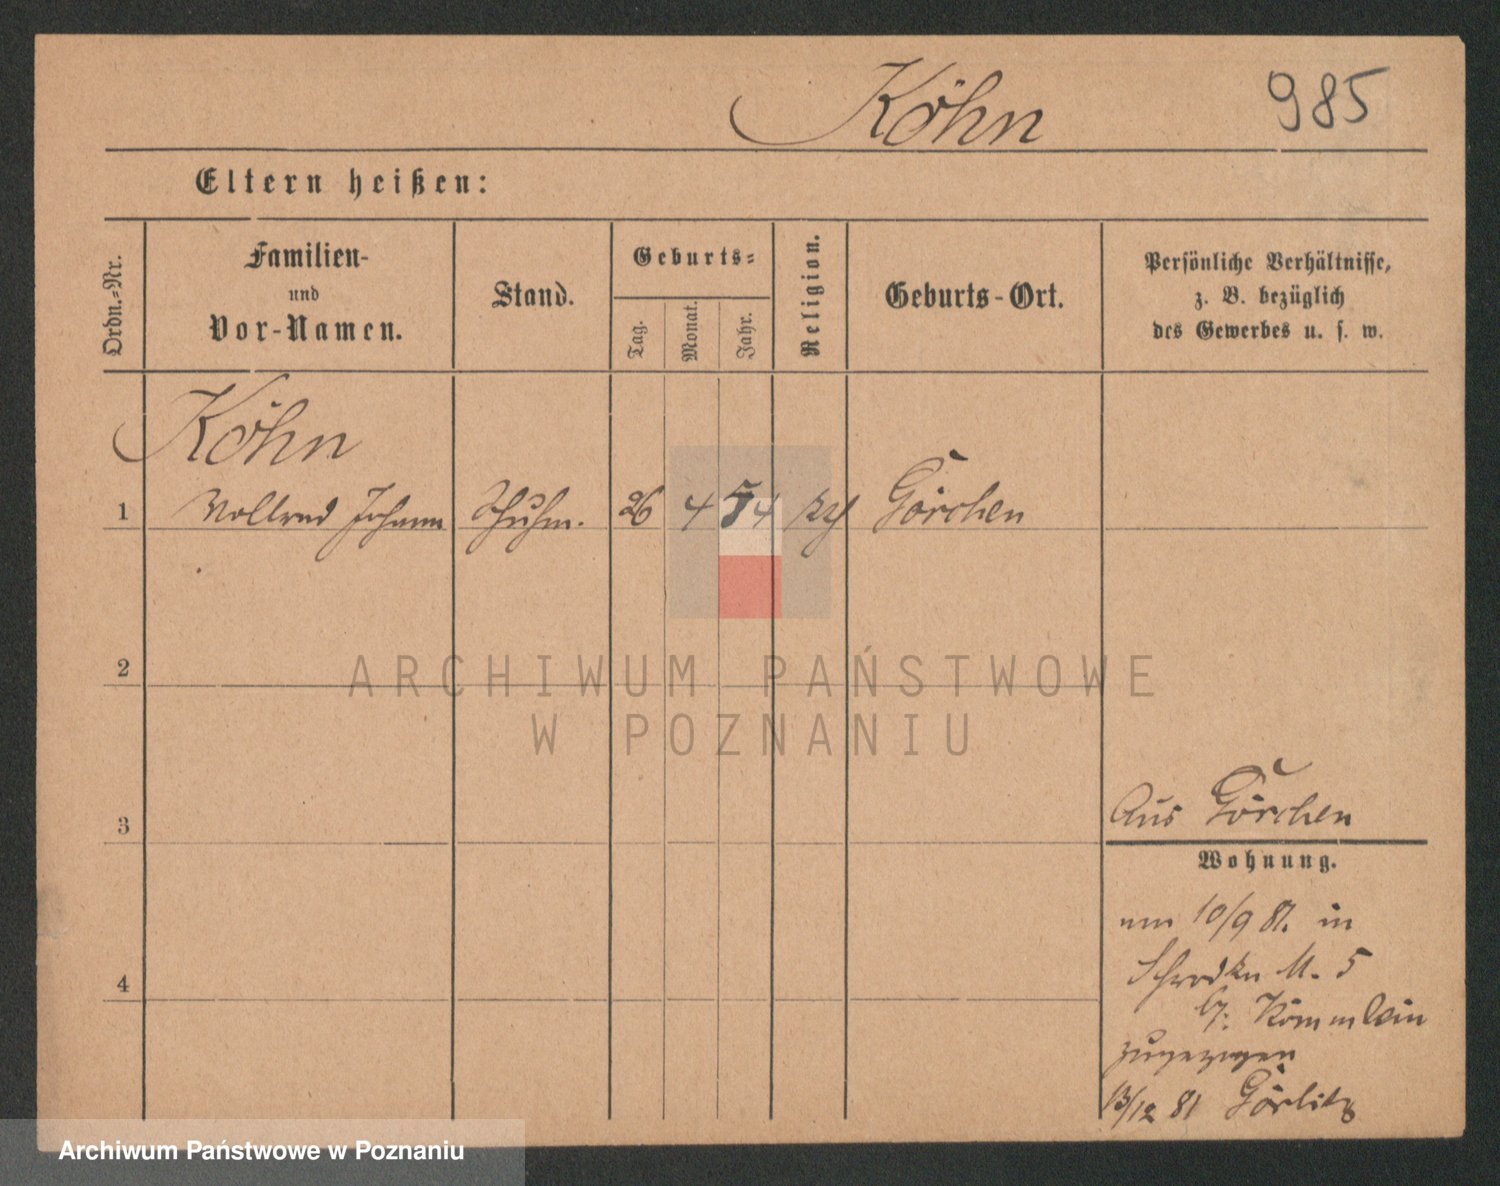 Köhn
985
Eltern heißen:
Ordn.-Nr.
Familien-
und
Vor-Namen.
Stand.
Geburts-
Tag.
Monat.
Jahr.
Religion.
Geburts-Ort.
Persönliche Verhältnisse,
z. B. bezüglich
des Gewerbes u. s. w.
Köhn
1 Vollrad Johann Schuhm. 26 4 54 Görchen
2
3
4
Aus Görchen
Wohnung.
am 10/9 81. in
Schrodka M. 5
b:
zugezogen
13/12 81 Görlitz
ARCHIWUM PAŃSTWOWE
W POZNANIU
Archiwum Państwowe w Poznaniu